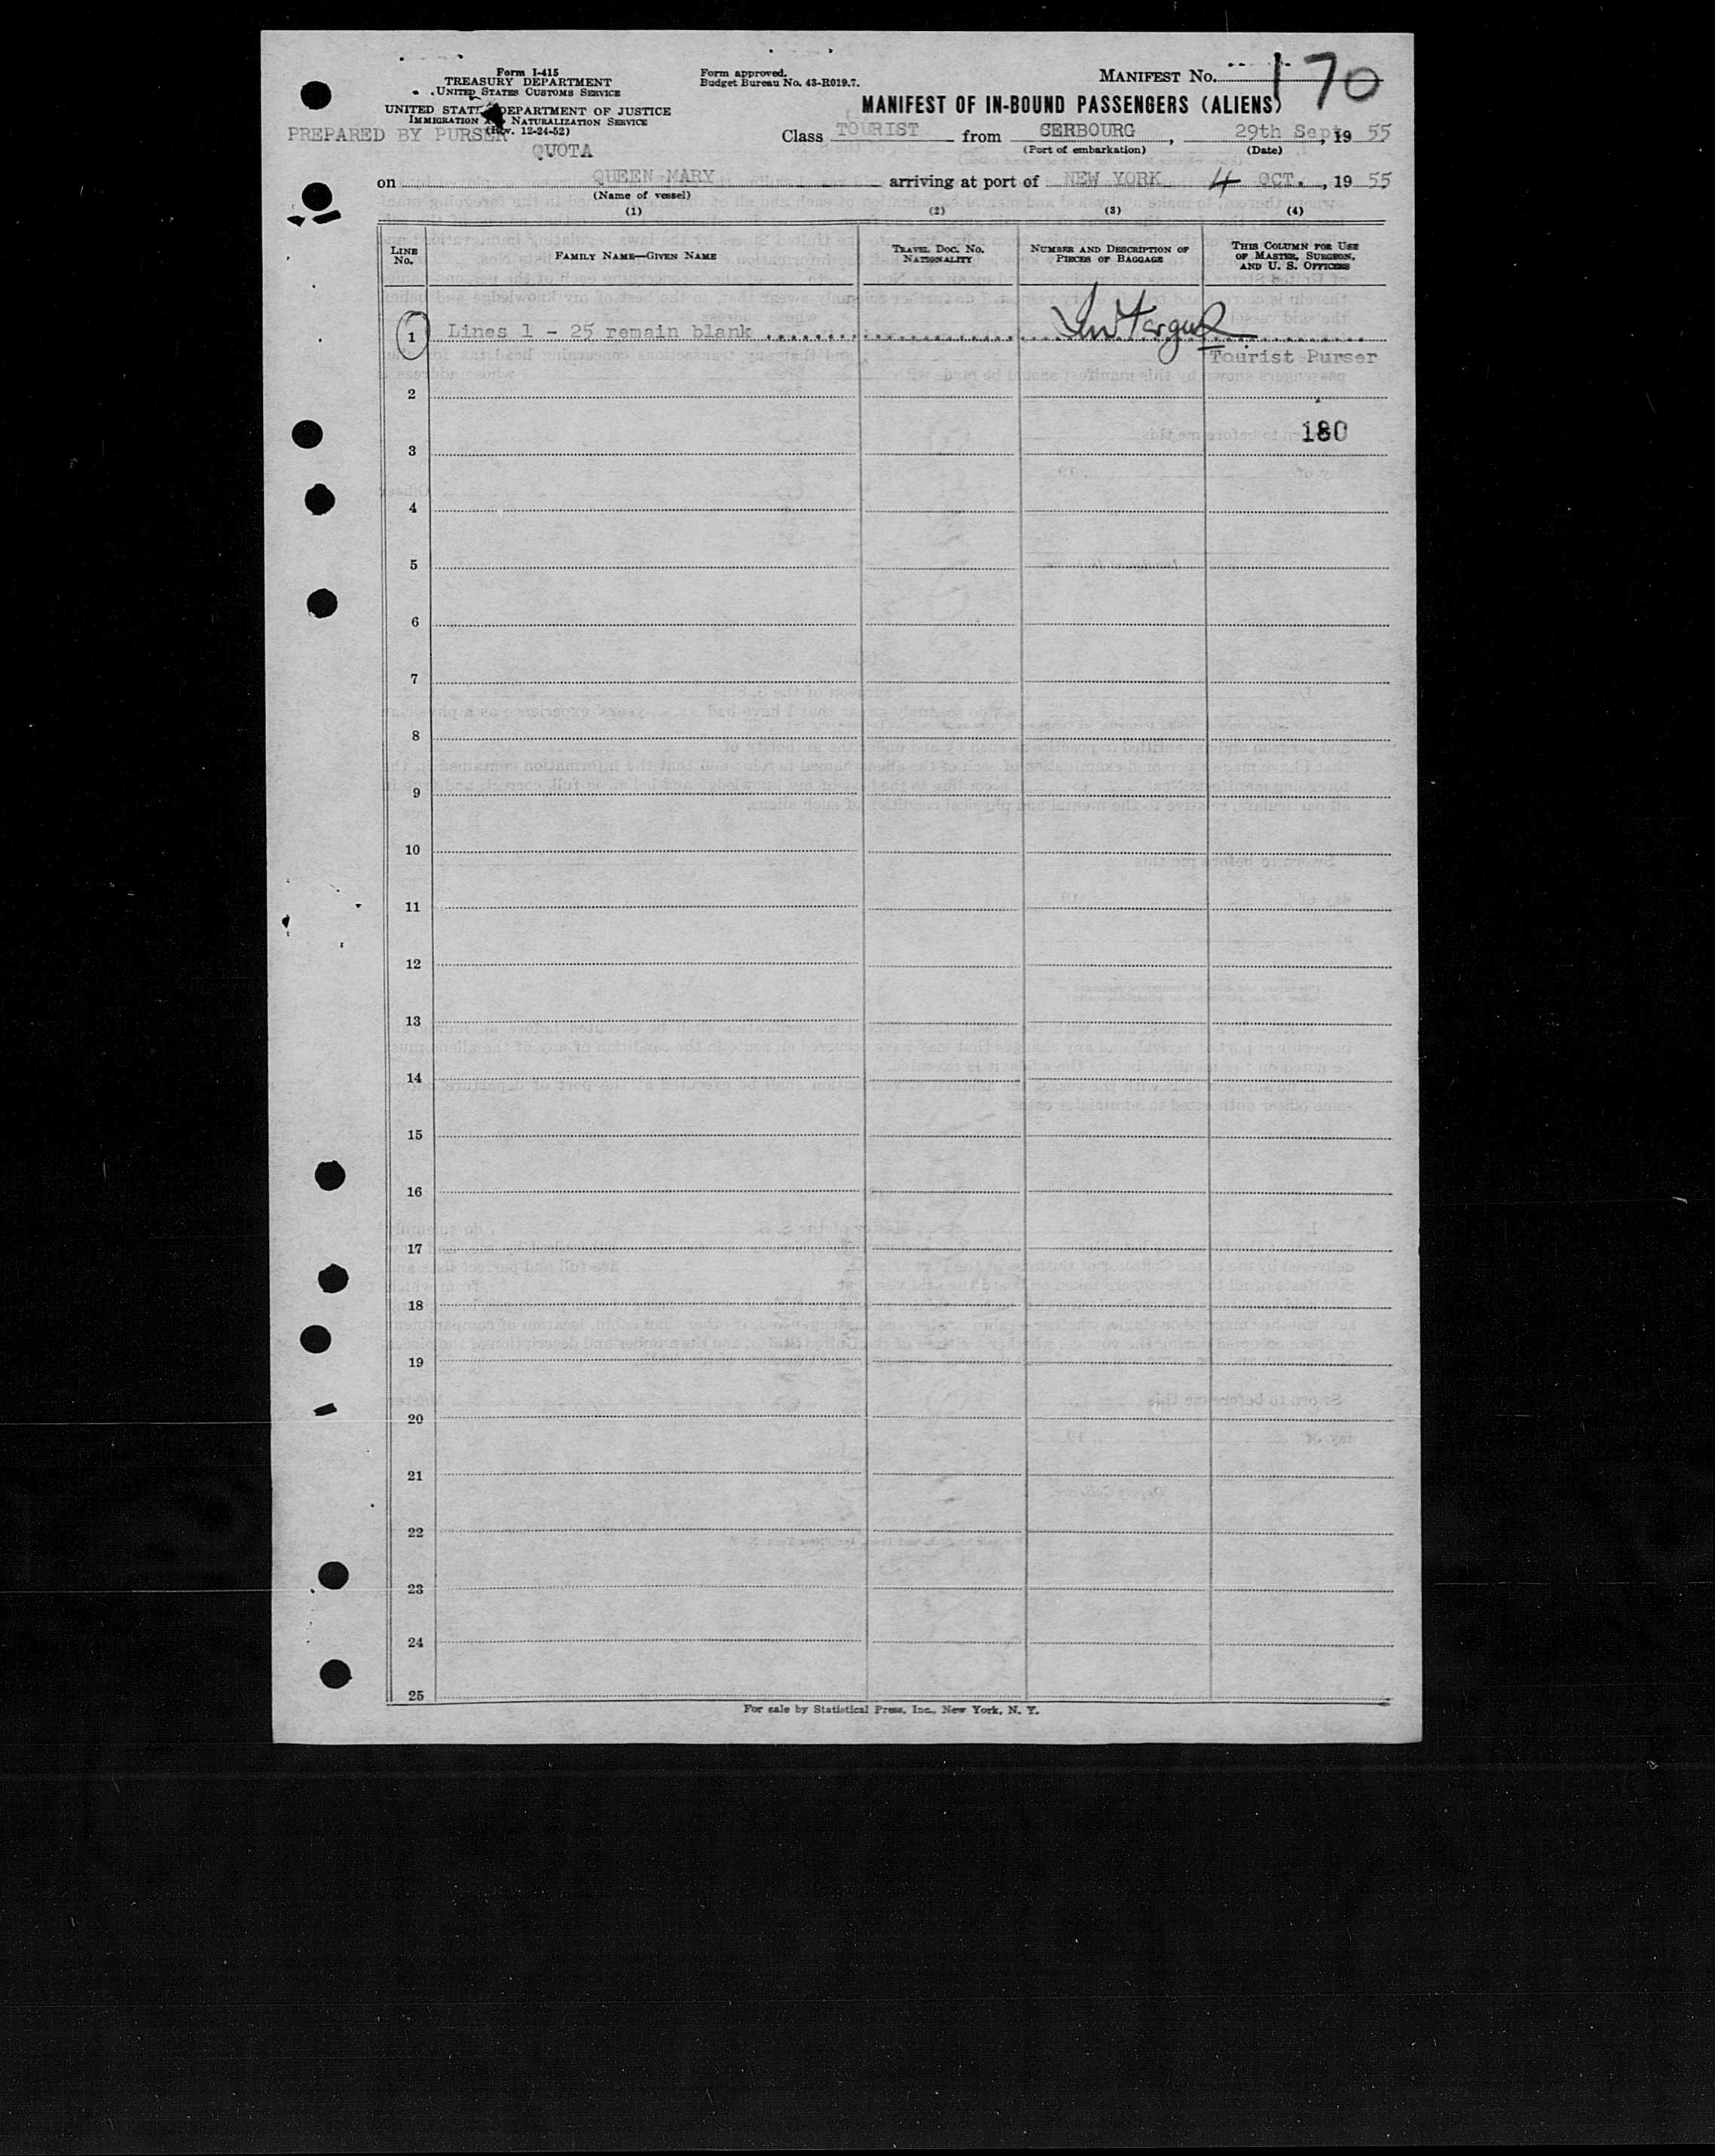 Form I-415
TREASURY DEPARTMENT
UNITED STATES CUSTOMS SERVICE
UNITED STATES DEPARTMENT OF JUSTICE
IMMIGRATION AND NATURALIZATION SERVICE
(Rev. 12-24-52)
PREPARED BY PURSER
QUOTA
Form approved.
Budget Bureau No. 43-R019.7.
MANIFEST NO. 170
MANIFEST OF IN-BOUND PASSENGERS (ALIENS)
Class TOURIST from CERBOURG, 29th Sept, 19 55
(Port of embarkation) (Date)
on QUEEN MARY arriving at port of NEW YORK 4 OCT., 19 55
(Name of vessel)
(1) (2) (3) (4)
LINE NO.
FAMILY NAME—GIVEN NAME
TRAVEL DOC. NO. NATIONALITY
NUMBER AND DESCRIPTION OF PIECES OF BAGGAGE
THIS COLUMN FOR USE OF MASTER, SURGEON, AND U. S. OFFICERS
1 Lines 1 - 25 remain blank
Tourist Purser
2
180
3
4
5
6
7
8
9
10
11
12
13
14
15
16
17
18
19
20
21
22
23
24
25
For sale by Statistical Press, Inc., New York, N. Y.